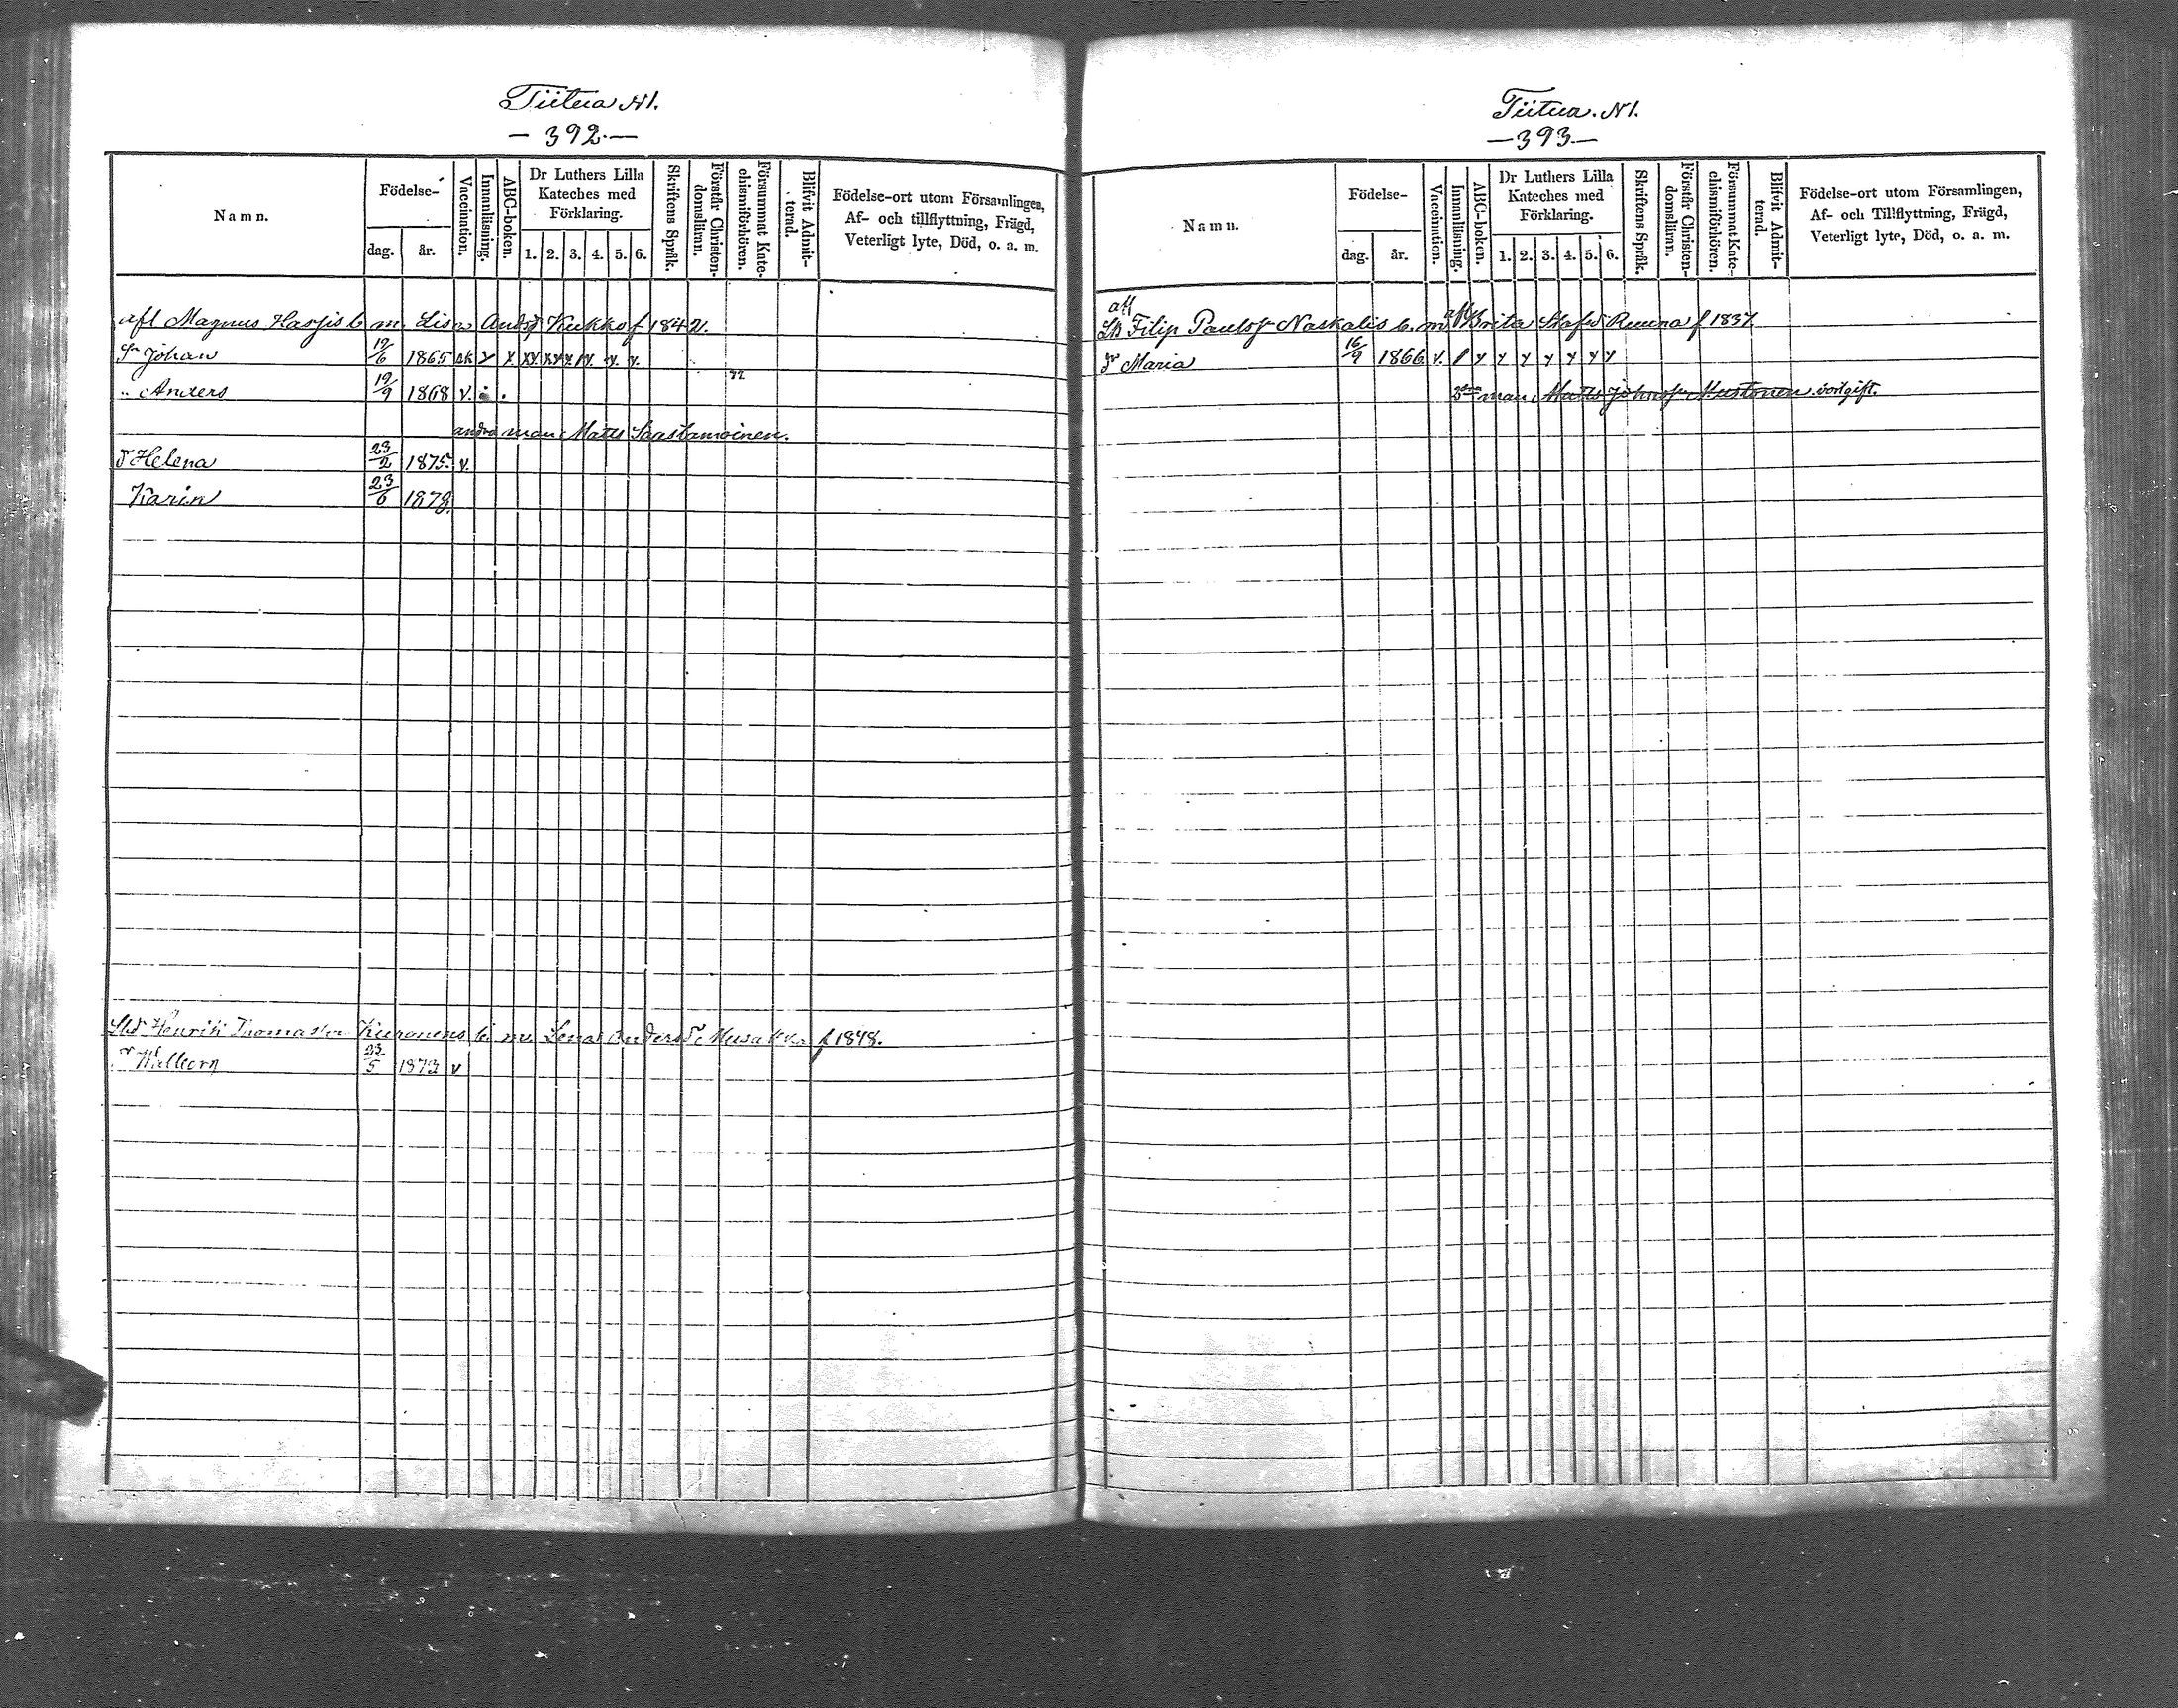 Tiitua N1.
— 392. —
Namn.
Födelse-
dag.
år.
Vaccination.
Innanläsning.
ABC-boken.
Dr Luthers Lilla
Kateches med
Förklaring.
1. 2. 3. 4. 5. 6.
Skriftens Språk.
Förstår Christen-
domsläran.
Försummat Kate-
chismiförhören.
Blifvit Admit-
terad.
Födelse-ort utom Församlingen,
Af- och tillflyttning, Frägd,
Veterligt lyte, Död, o. a. m.
afl Magnus b. m. Lisa Andsd Kukko f 1842.
Sn Johan 19/6 1865 v v x xv xv v. v. v. v.
" Anders 19/9 1868 v. 77.
andra man Matts Saastamoinen.
dr Helena 23/2 1875. v.
Karin 23/6 1878.
Henrik Thomasson Kuronens b. m. Lena Anders dr f 1848.
dr Walborg 23/5 1873 v
Tiitua. N1.
— 393 —
Namn.
Födelse-
dag.
år.
Vaccination.
Innanläsning.
ABC-boken.
Dr Luthers Lilla
Kateches med
Förklaring.
1. 2. 3. 4. 5. 6.
Skriftens Språk.
Förstår Christen-
domsläran.
Försummat Kate-
chismiförhören.
Blifvit Admit-
terad.
Födelse-ort utom Församlingen,
Af- och Tillflyttning, Frägd,
Veterligt lyte, Död, o. a. m.
afl Filip Paulss Naskalis b. m. afl Brita Stafsd f 1837
dr Maria 16/9 1866 v. / y y y y y y y
man Matts Johnss Mustonen. vorlgift.